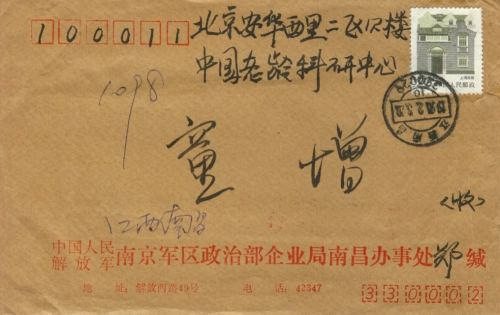 100011
北京安华西里二区12楼
中国老龄科研中心
1098
童增
〈收〉
江西南昌
中国人民解放军南京军区政治部企业局南昌办事处 郑 缄
地 址：解放西路49号 电 话：42347
330002
上海民居
中国人民邮政